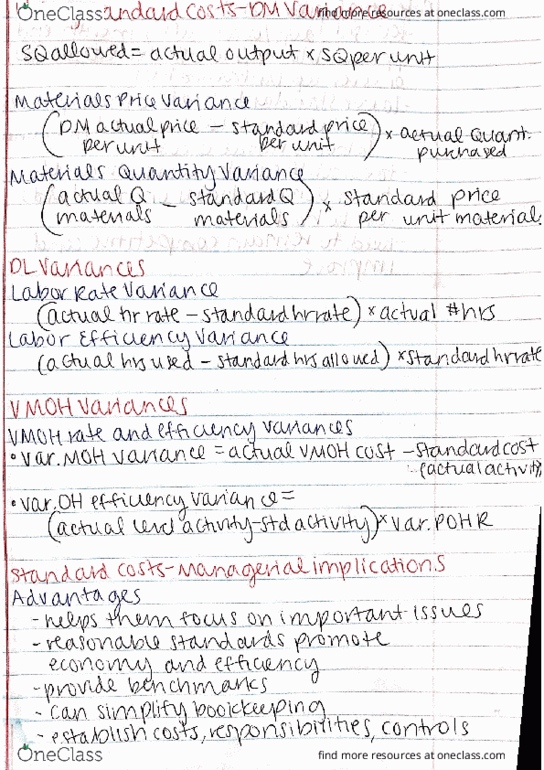 OneClass
Standard Costs-DM Variances
find more resources at oneclass.com
SQ allowed = actual output × SQ per unit
Materials Price Variance
(DM actual price − standard price) × actual Quant.
per unit per unit purchased
Materials Quantity Variance
(actual Q − standard Q) × standard price
materials materials per unit material
DL Variances
Labor Rate Variance
(actual hr rate − standard hr rate) × actual # hrs
Labor Efficiency Variance
(actual hrs used − standard hrs allowed) × standard hr rate
VMOH Variances
VMOH rate and efficiency variances
• var. MOH variance = actual VMOH cost − standard cost
(actual activity
• var. OH efficiency variance =
(actual level activity - std activity) × var. POHR
Standard Costs-Managerial implications
Advantages
- helps them focus on important issues
- reasonable standards promote
economy and efficiency
- provide benchmarks
- can simplify bookkeeping
- establish costs, responsibilities, controls
OneClass
find more resources at oneclass.com